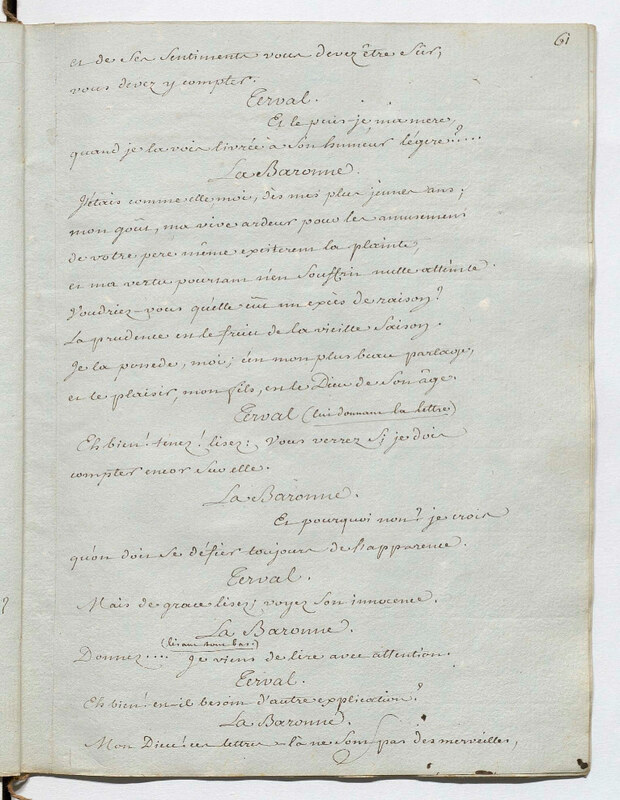 61
et de ses sentiments vous devez être sûr,
vous devez y compter.
Terval.
Et le puis-je, ma mere,
quand je la vois livrée à son humeur légere?....
La Baronne.
J'étais comme elle moi, dès mes plus jeunes ans;
mon goût, ma vive ardeur pour les amusemens
de votre pere même exciterent la plainte,
et ma vertu pourtant n'en souffrit nulle atteinte.
Voudriez-vous qu'elle eût un excès de raison?
La prudence est le fruit de la vieille saison.
Je la possede, moi; c'est mon plus beau partage,
et le plaisir, mon fils, est le Dieu de son âge.
Terval (lui donnant la lettre)
Eh bien! tenez! lisez; vous verrez si je dois
compter encor sur elle.
La Baronne.
Et pourquoi non? je crois
qu'on doit se défier toujours de l'apparence.
Terval.
Mais de grace lisez; voyez son innocence.
La Baronne.
(lisant tout bas)
Donnez.... Je viens de lire avec attention.
Terval.
Eh bien! est-il besoin d'autre explication?
La Baronne.
Mon Dieu! ces lettres-là ne sont pas des merveilles,